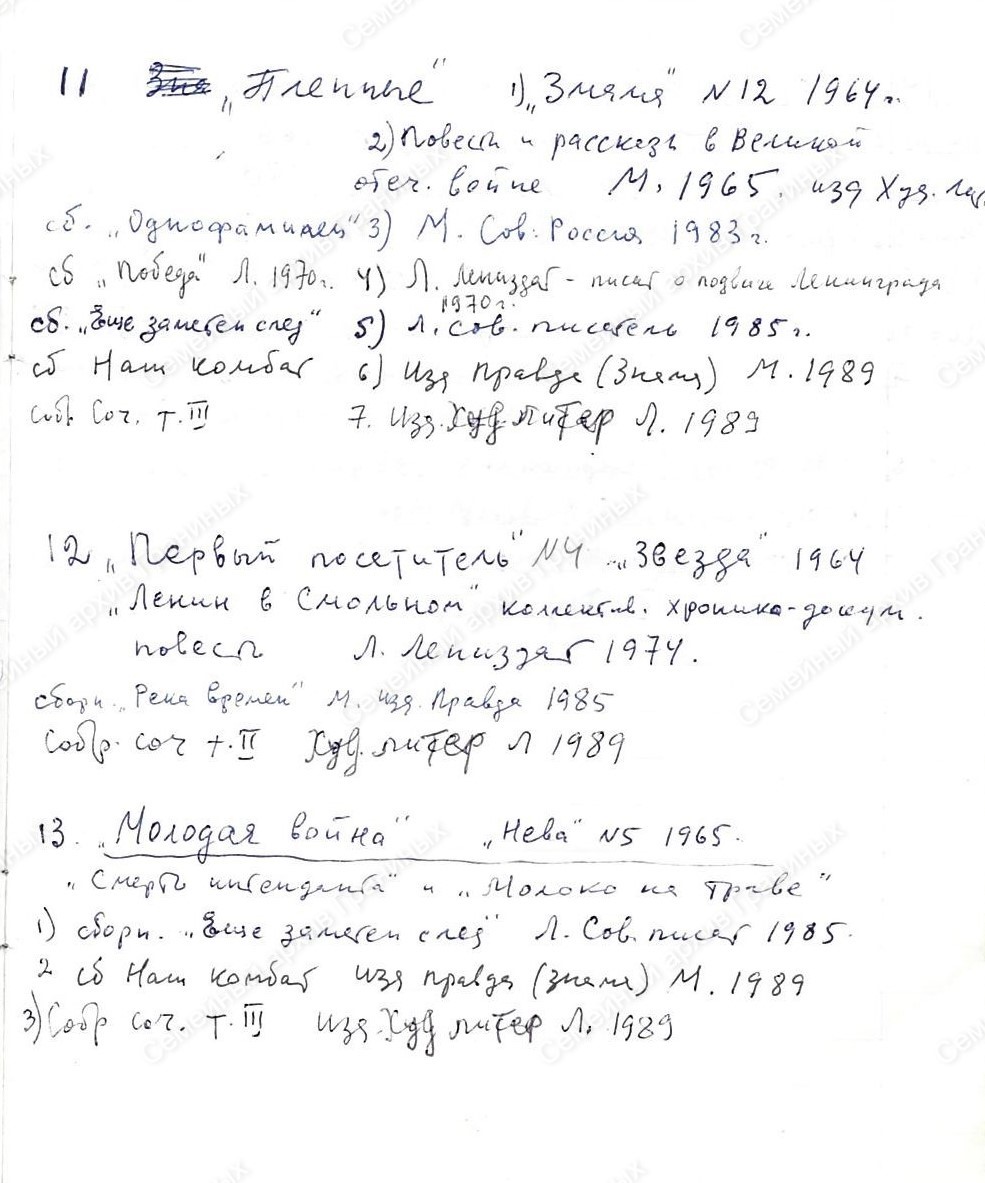 11 „Пленные“ 1) „Знамя“ N12 1964г.
2) Повести и рассказы в Великой
отеч. войне М. 1965. изд Худ. лит.
сб. „Однофамилец“ 3) М. Сов. Россия 1983г.
сб „Победа“ Л. 1970г. 4) Л. Лениздат - писат о подвиге Ленинграда
1970г.
сб. „Еще заметен след“ 5) Л. сов. писатель 1985г.
сб Наш комбат 6) Изд Правда (Знамя) М. 1989
Собр. Соч. т. III 7. Изд. Худ литер Л. 1989
12 „Первый посетитель“ N4 „Звезда“ 1964
„Ленин в Смольном“ коллектив. хроника-докум.
повесть Л. Лениздат 1974.
сборн. „Река времен“ М. изд. Правда 1985
Собр. соч т. II Худ. литер Л 1989
13. „Молодая война“ „Нева“ N5 1965.
„Смерть интенданта“ и „Молоко на траве“
1) сборн. „Еще заметен след“ Л. Сов. писат 1985.
2 сб Наш комбат изд правда (знамя) М. 1989
3) Собр соч. т. III изд. Худ литер Л. 1989
Семейный архив Граниных